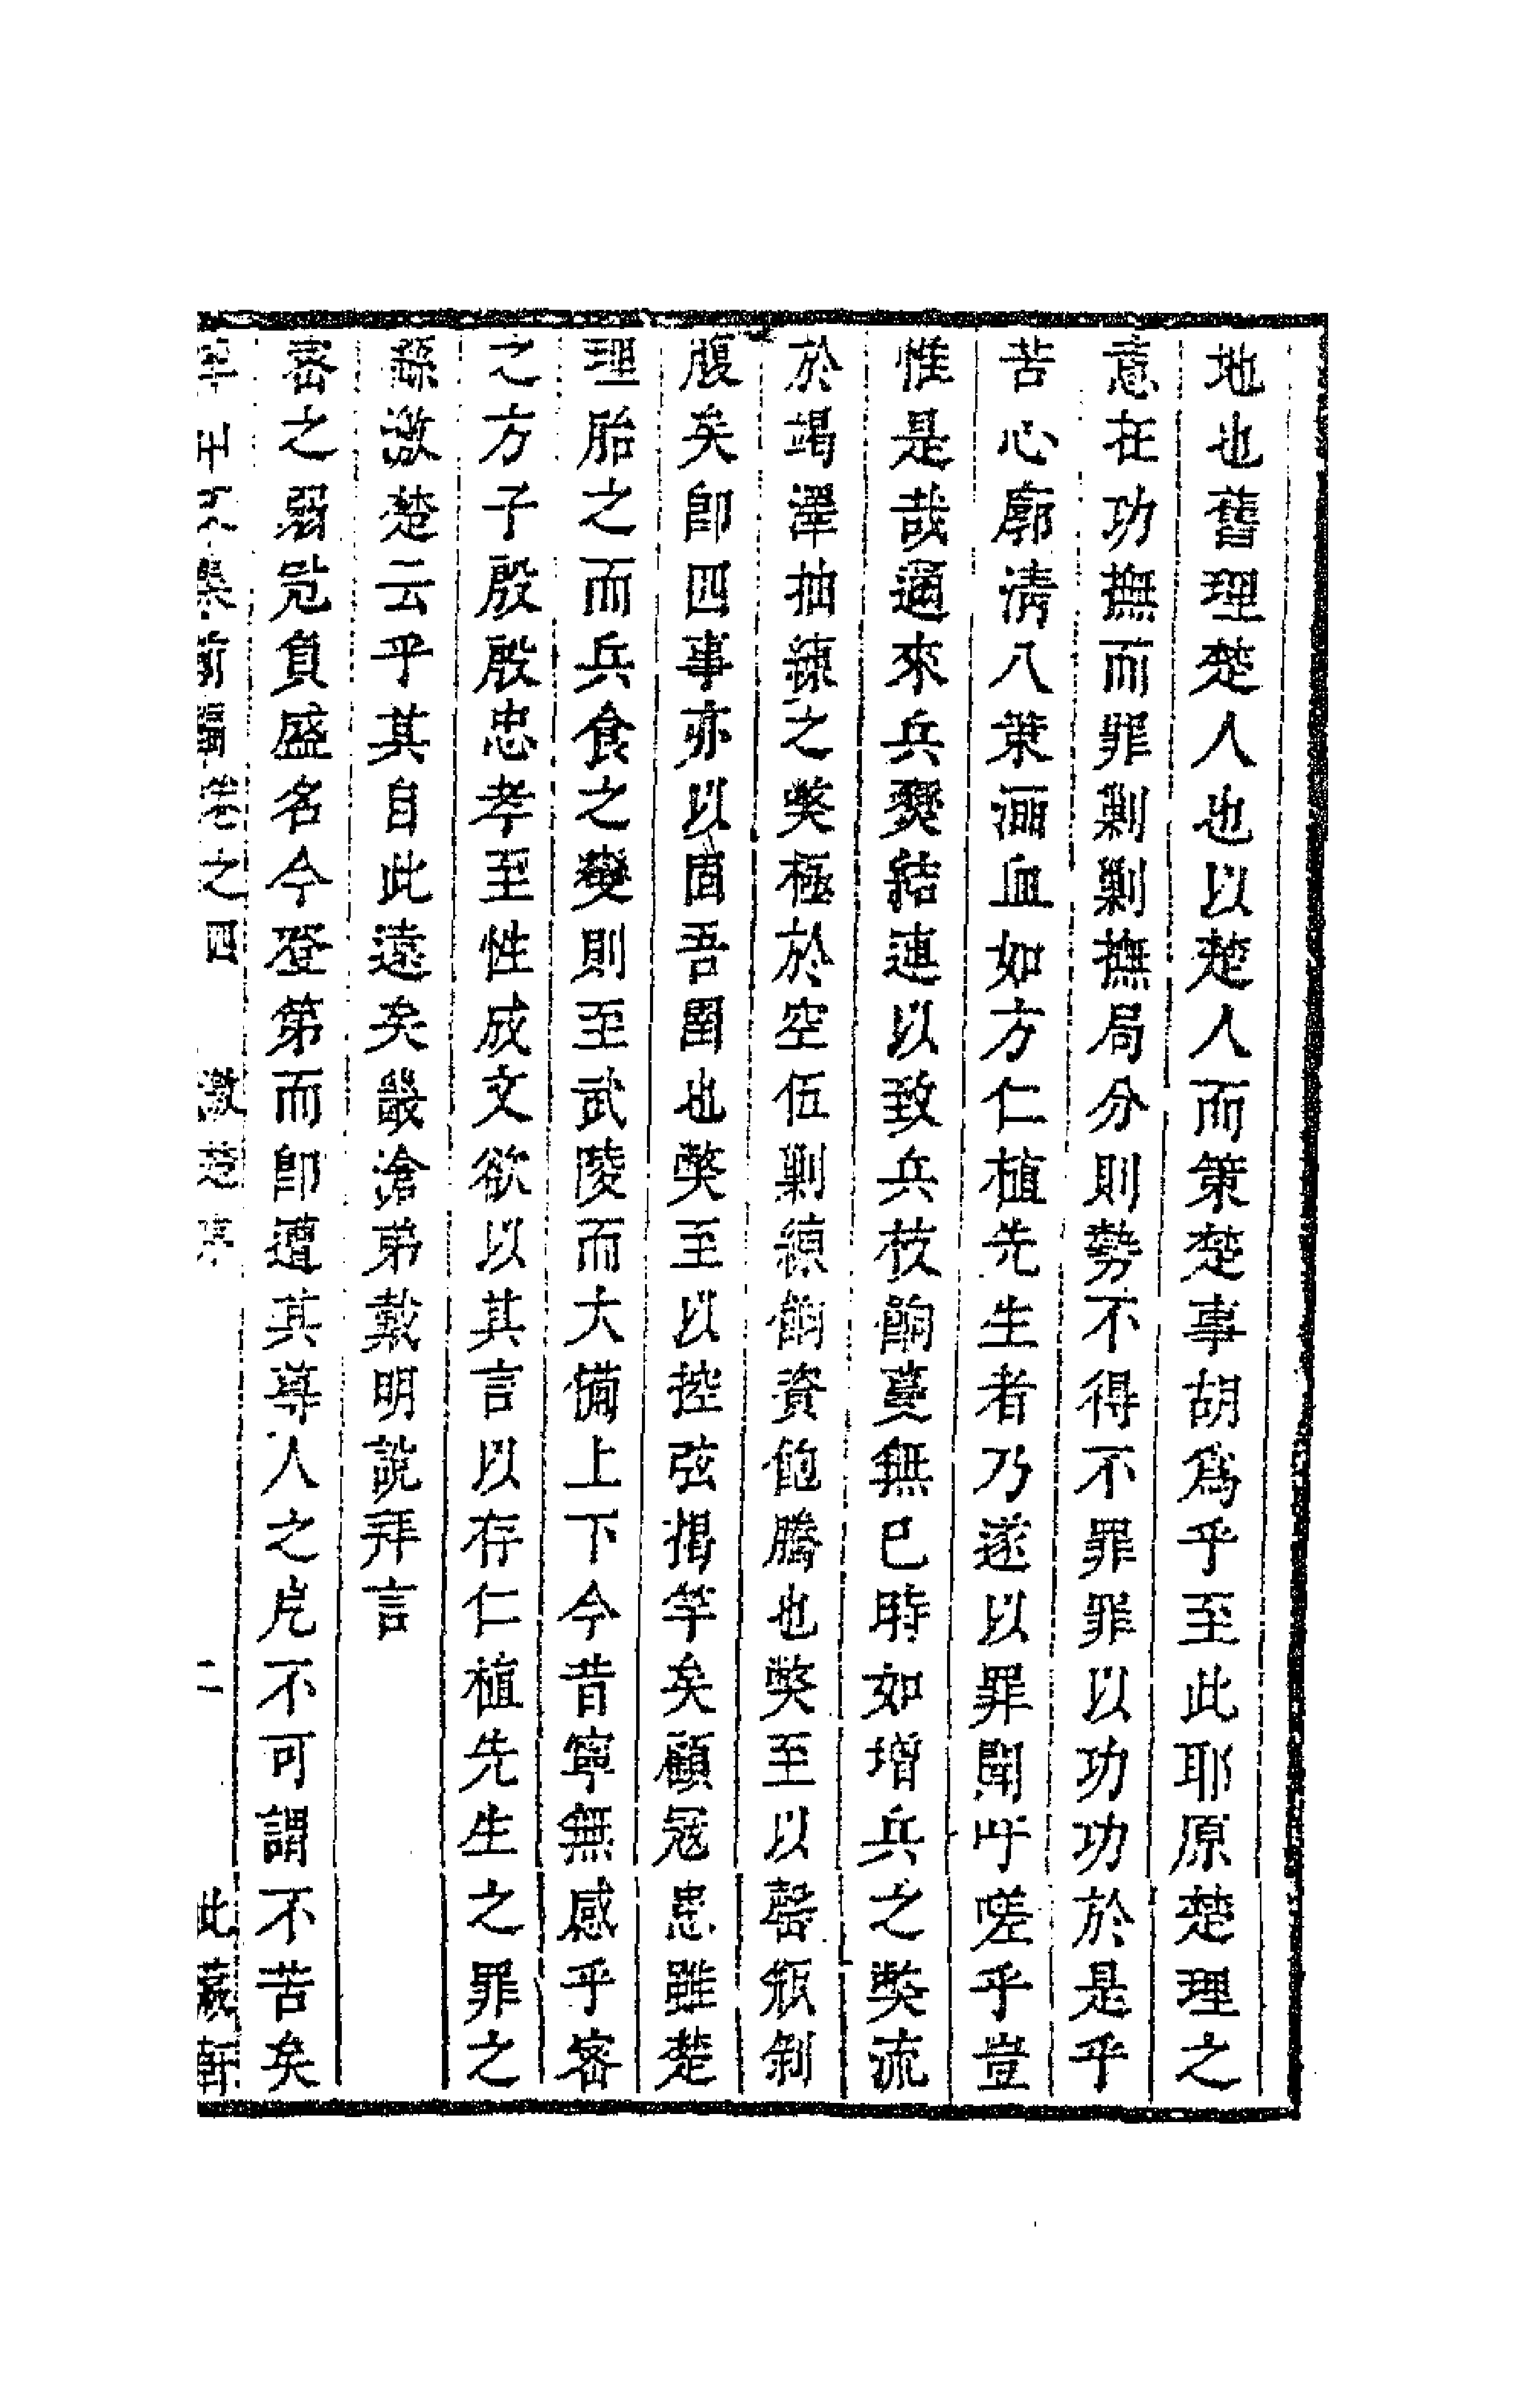 地也舊理楚人也以楚人而策楚事胡爲乎至此耶原楚理之
意在功撫而罪剿剿撫局分則勢不得不罪罪以功功於是乎
苦心廓清八策洒血如方仁植先生者乃遂以罪聞吁嗟乎豈
惟是哉邇來兵釁結連以致兵枝餉蔓無已時如增兵之獘流
於竭澤抽練之獘極於空伍剿練餉資飽騰也獘至以罄瓶剝
腹矣卽四事亦以固吾圉也獘至以控弦揭竿矣顧冦患雖楚
理胎之而兵食之變則至武陵而大備上下今昔寧無感乎密
之方子殷殷忠孝至性成文欲以其言以存仁植先生之罪之
繇激楚云乎其自此遠矣嚴滄弟戴明說拜言
密之弱冠負盛名今登第而卽遭其尊人之戹不可謂不苦矣
文集前編卷之四　激楚序　二　此藏軒